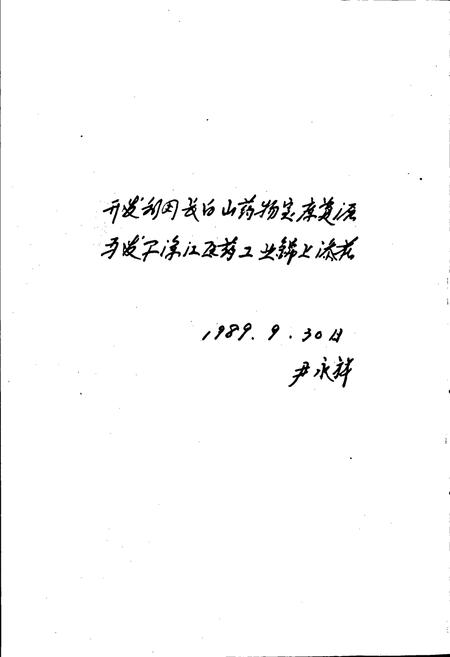 开发利用长白山药物宝库资源
为浑江医药工业锦上添花
1989.9.30日
尹永祥